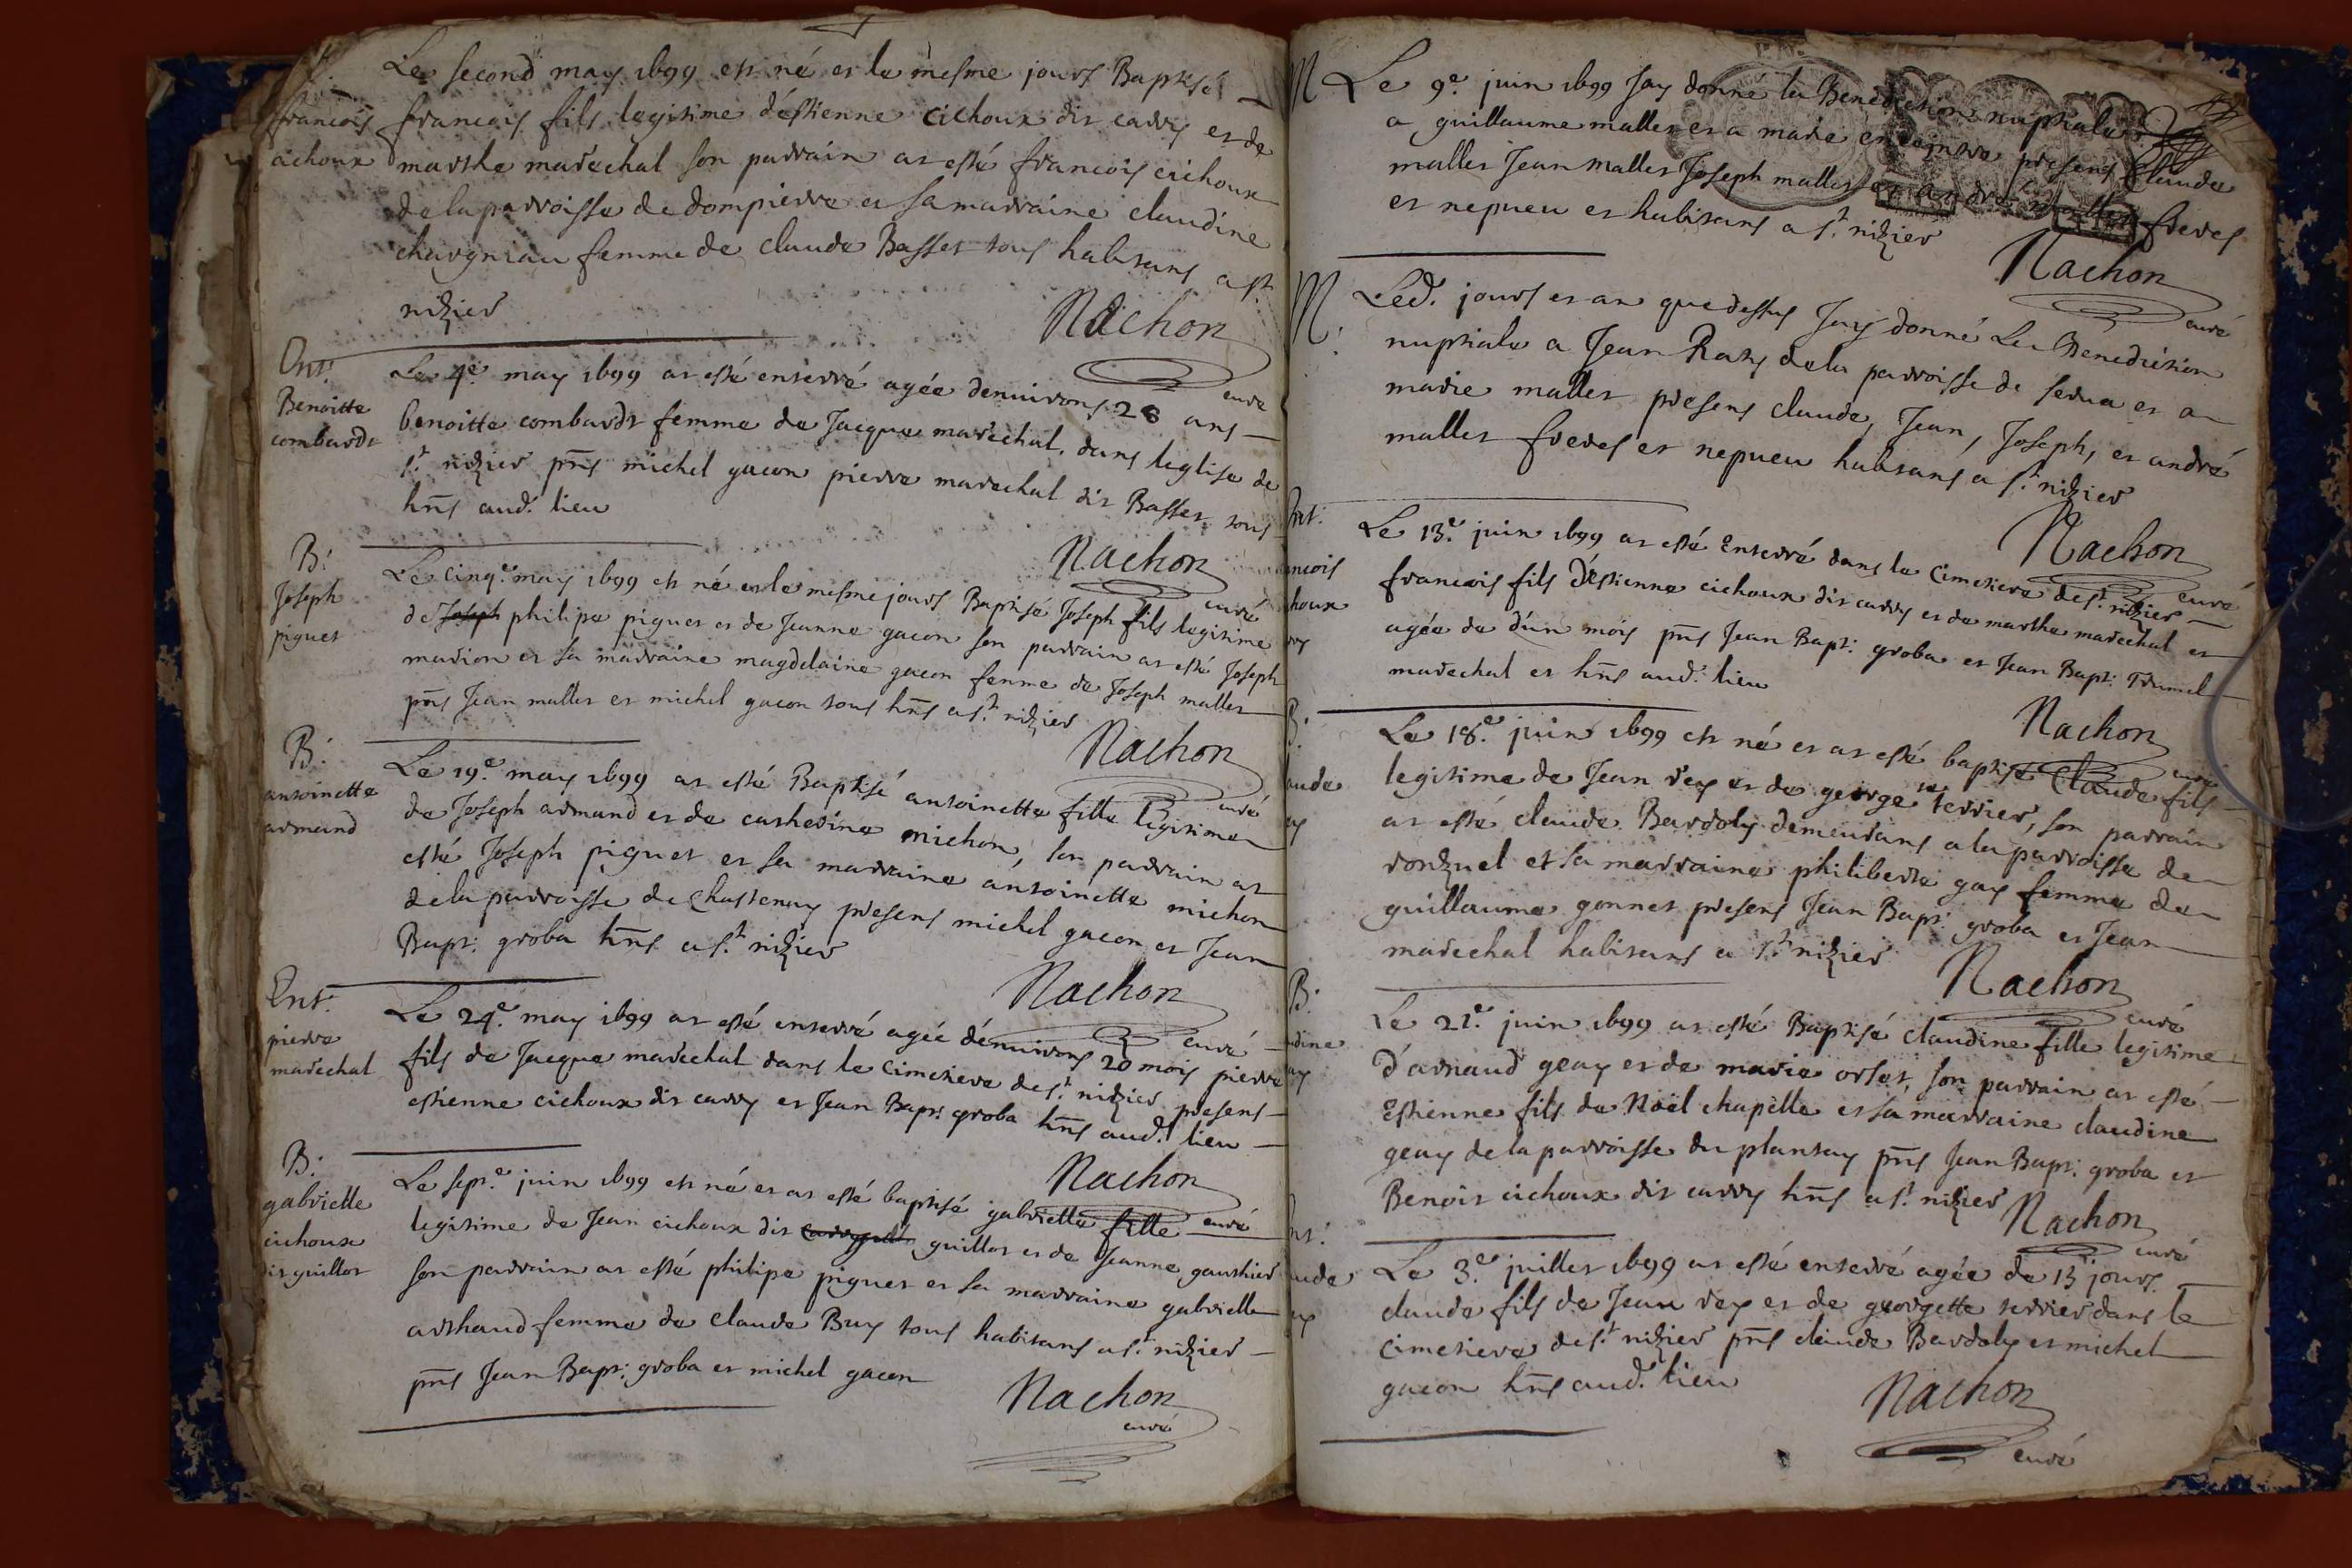 Le second may 1699 est né et le mesme jours Baptisé
francois
francois fils legitime d'estienne cichoux dit carry et de
cichoux
marthe marechal son parrain at esté francois cichoux
de la parroisse de dompierre et sa marraine claudine
chavgniau femme de claude Basset tous habitans a st
nizier
Nachon
curé
Ent:
Benoitte
combardt
Le 4e. may 1699 at esté enterré agée denuirons 28 ans
benoitte combardt femme de Jacque marechal. dans leglise de
st. nizier pnts michel gacon pierre marechal dit Basset tous
hnts aud. lieu
Nachon
curé
B:
Joseph
piguet
Le cinqe. may 1699 est né et le mesme jours Baptisé Joseph fils legitime
de Joseph philipe piguet et de Jeanne gacon son parrain at esté Joseph
marion et sa marraine magdelaine gacon femme de Joseph mallet
pnts Jean mallet et michel gacon tous hnts a st. nizier
Nachon
curé
B:
antoinette
armand
Le 19e. may 1699 at esté Baptisé antoinette fille legitime
de Joseph armand et de catherine michon, son parrain at
esté Joseph piguet et sa marraine antoinette michon
de la parroisse de Chastenay presens michel gacon et Jean
Bapt: groba hnts a st. nizier
Nachon
curé
Ent:
pierre
marechal
Le 24e. may 1699 at esté enterré agée dénuirons 20 mois pierre
fils de Jacque marechal dans le cimetiere de st. nizier presens
estienne cichoux dit carry et Jean Bapt: groba hnts aud. lieu
Nachon
curé
B:
gabrielle
cichoux
dit guillot
Le sept.e juin 1699 est né et at esté baptisé gabrielle fille
legitime de Jean cichoux dit guillot et de Jeanne gauthier
son parrain at esté philipe piguet et sa marraine gabrielle
arthaud femme de claude Buy tous habitans a st. nizier
pnts Jean Bapt: groba et michel gacon
Nachon
curé
M
Le 9e. juin 1699 Jay donne la Benediction nuptiale
a guillaume mallet et a marie presens Claude
mallet Jean mallet Joseph mallet et andre mallet freres
et nepueu et habitans a st. nizier
Nachon
curé
M:
Led. jours et an que dessus Jay donné La Benediction
nuptiale a Jean Raty de la parroisse de serua et a
marie mallet presens claude, Jean, Joseph, et andré
mallet freres et nepueu habitans a st. nizier
Nachon
curé
Ent:
ancois
houx
ry
Le 13e. juin 1699 at esté Enterré dans le Cimetiere de st. nizier
francois fils d'estienne cichoux dit carry et de marthe marechal et
agée de d'un mois pnts Jean Bapt: groba et Jean Bapt: Trumel
marechal et hnts aud. lieu
Nachon
curé
B:
aude
ey
Le 18e. juin 1699 est né et at esté baptisé Claude fils
legitime de Jean rey et de georgette terrier, son parrain
at esté claude Bardoly demeurans a la parroisse de
ronzuel et sa marraine philiberte gay femme de
guillaume gonnet presens Jean Bapt: groba et Jean
marechal habitans a st. nizier
Nachon
curé
B:
udine
ay
Le 21e. juin 1699 at esté Baptisé claudine fille legitime
d'arnaud geay et de marie orset, son parrain at esté
Estienne fils de Noël chapelle et sa marraine claudine
geay de la parroisse du plantay pnts Jean Bapt: groba et
Benoit cichoux dit carry hnts a st. nizier
Nachon
curé
Ent:
aude
ey
Le 3.e juillet 1699 at esté enterré agée de 15 jours
claude fils de Jean rey et de georgette terrier dans le
cimetiere de st. nizier pnts claude Bardoly et michel
gacon hnts aud. lieu
Nachon
curé